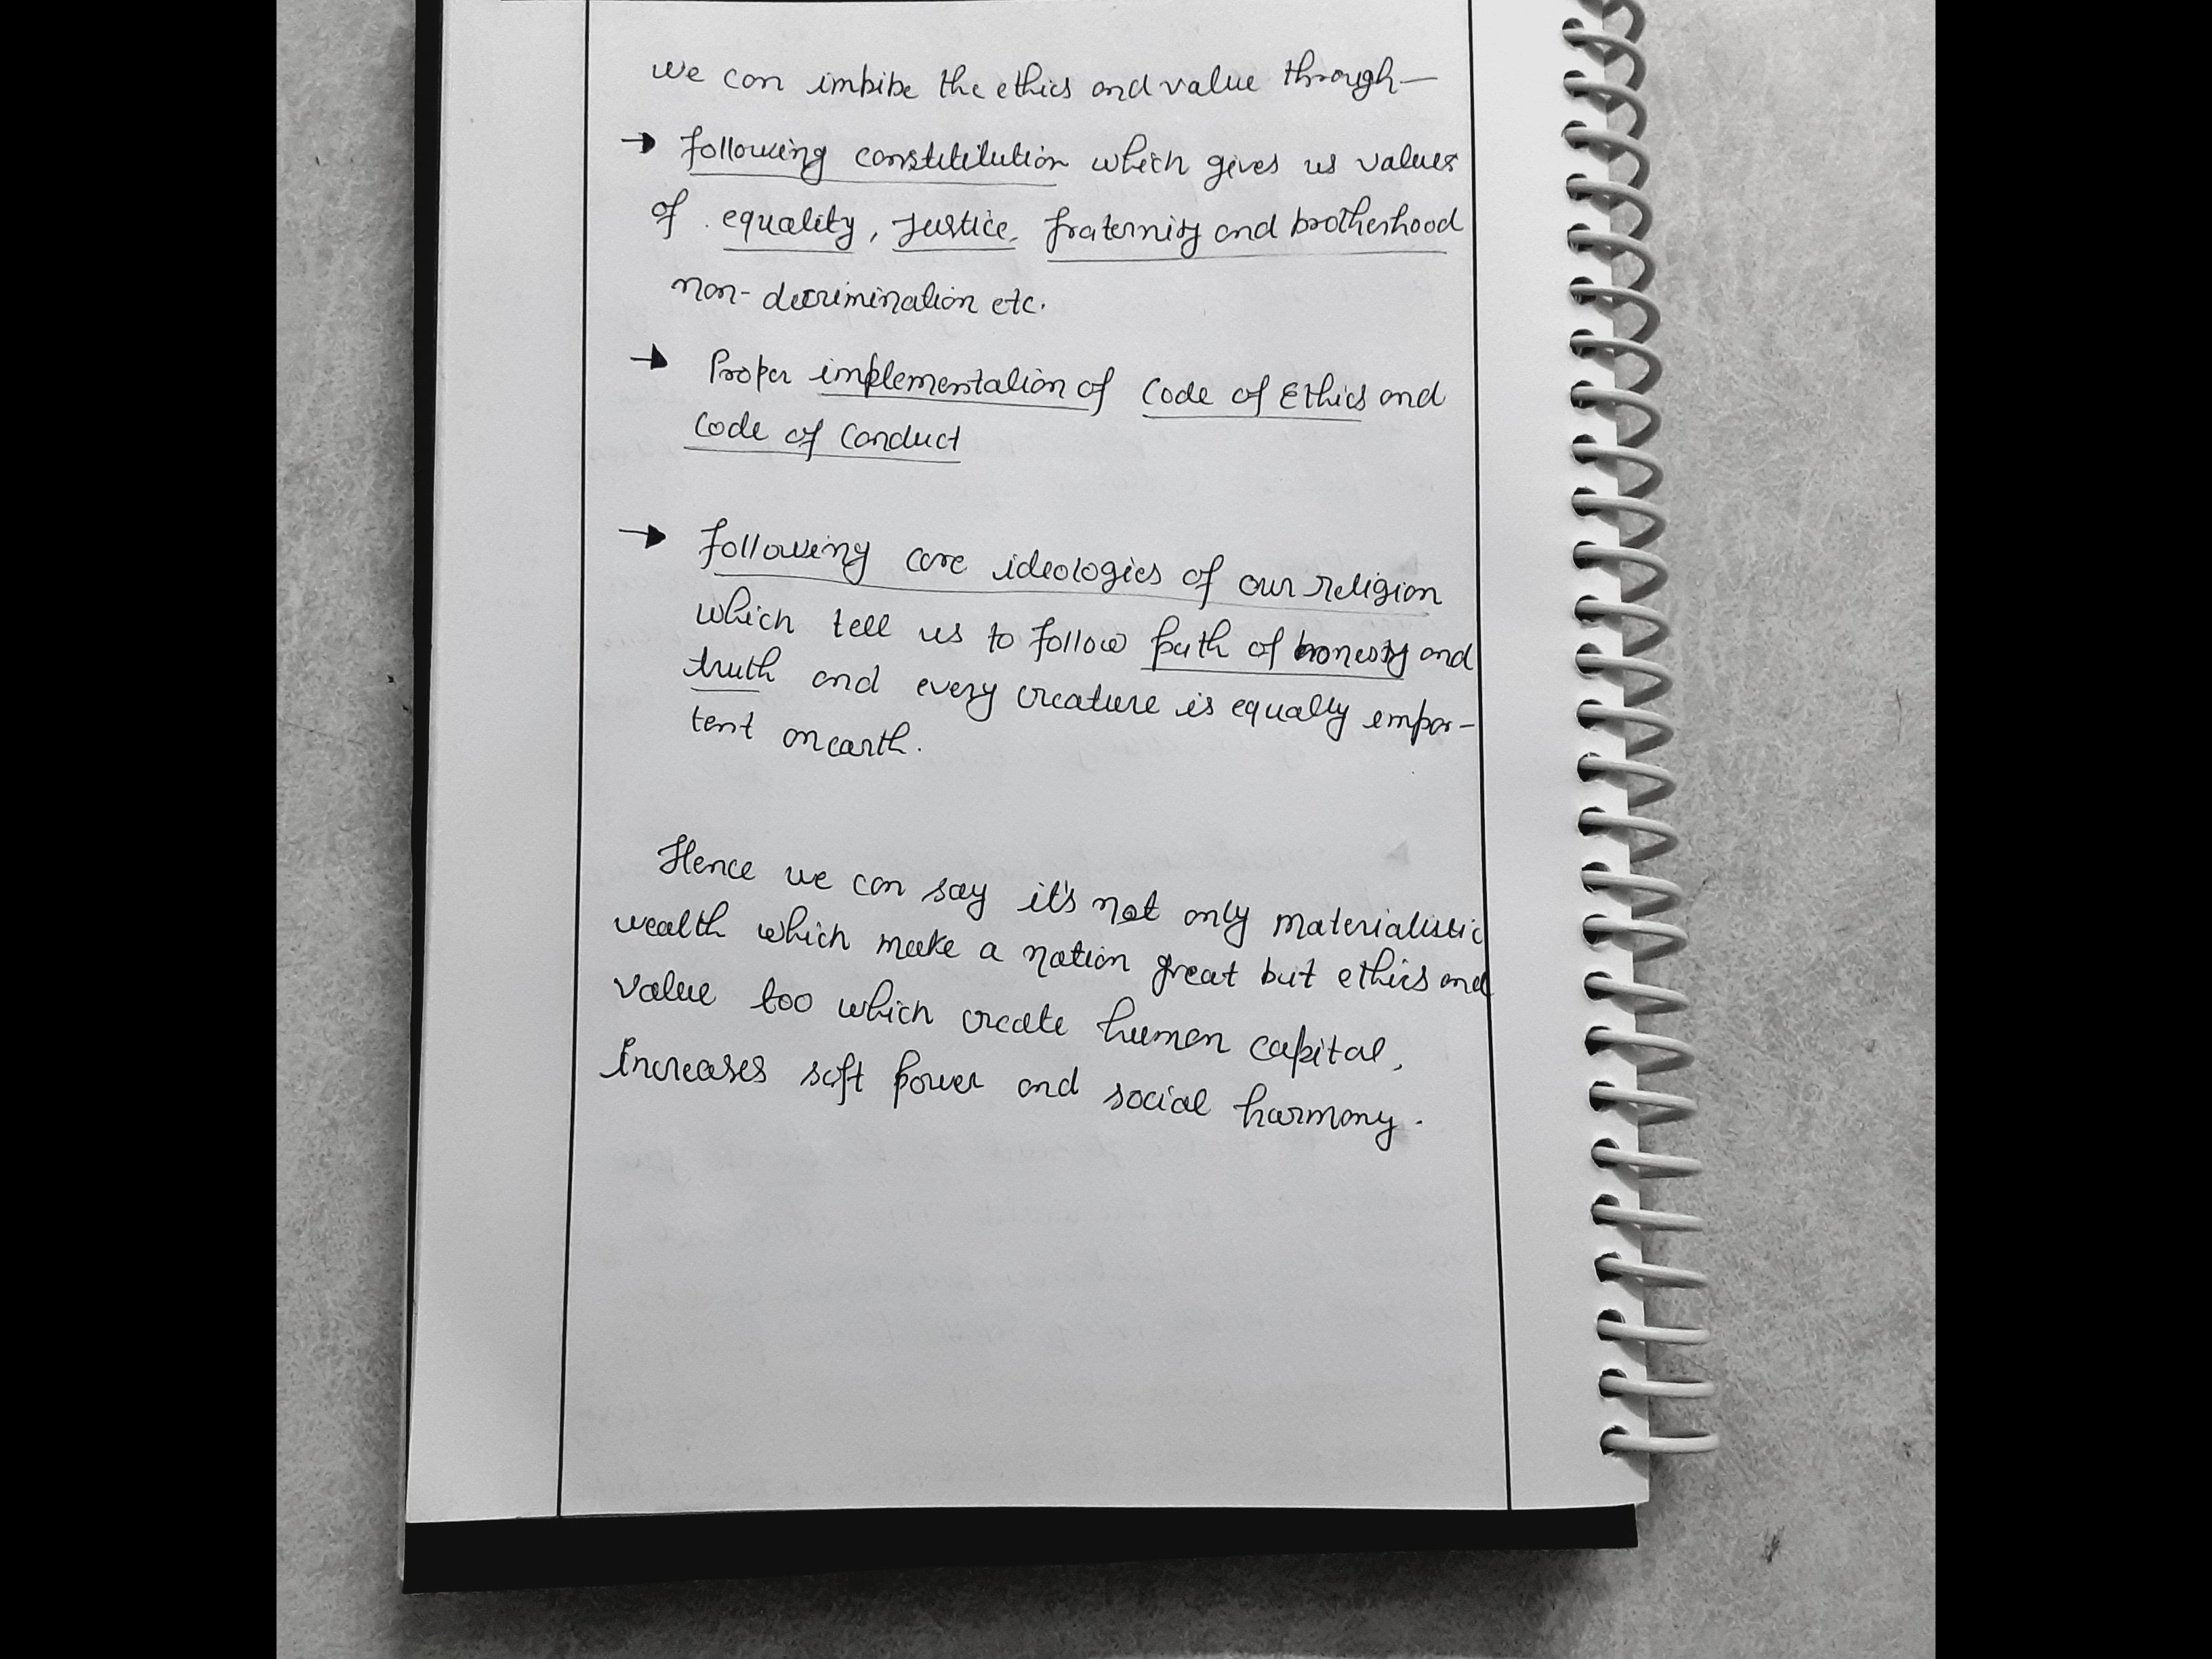 we can imbibe the ethics and value through—
→ following constitilution which gives us values
of equality, Justice, fraternity and brotherhood
non-decrimination etc.
→ Proper implementation of Code of Ethics and
Code of Conduct
→ following core ideologies of our religion
which tell us to follow path of honesty and
truth and every creature is equally impor-
tent on earth.
Hence we can say it's not only materialistic
wealth which make a nation great but ethics and
value too which create human capital,
increases soft power and social harmony.